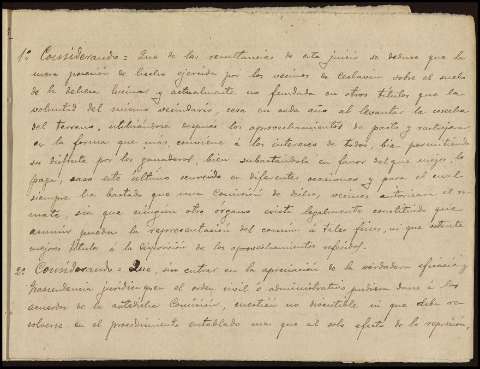 1º Considerando = Que de las resultancias de este juicio se deduce que la
mera posesión de hecho ejercida por los vecinos de Ceclavin sobre el suelo
de la dehesa y actualmente no fundada en otros títulos que la
voluntad del mismo vecindario, cesa en cada año al levantar la cosecha
del terreno, utilizándose después los aprovechamientos de pasto y rastrojera
en la forma que mas conviene á los intereses de todos, bien permitiendo
su disfrute por los ganaderos, bien subastandola en favor del que mejor la
paga, caso este último ocurrido en diferentes ocasiones y para el cual
siempre ha bastado que una Comisión de dichos vecinos autorizara el re-
mate, sin que ningun otro órgano exista legalmente constituido que
asumir pueda la representación del comun á tales fines, ni que ostente
mejores títulos á la disposición de los aprovechamientos referidos.
2º Considerando = Que, sin entrar en la apreciación de la verdadera eficacia y
trascendencia juridica que en el orden civil ó administrativo pudiera darse á los
acuerdos de la antedicha Comisión, cuestión no discutible ni que deba re-
solverse en el procedimiento entablado mas que al solo efecto de la represión,